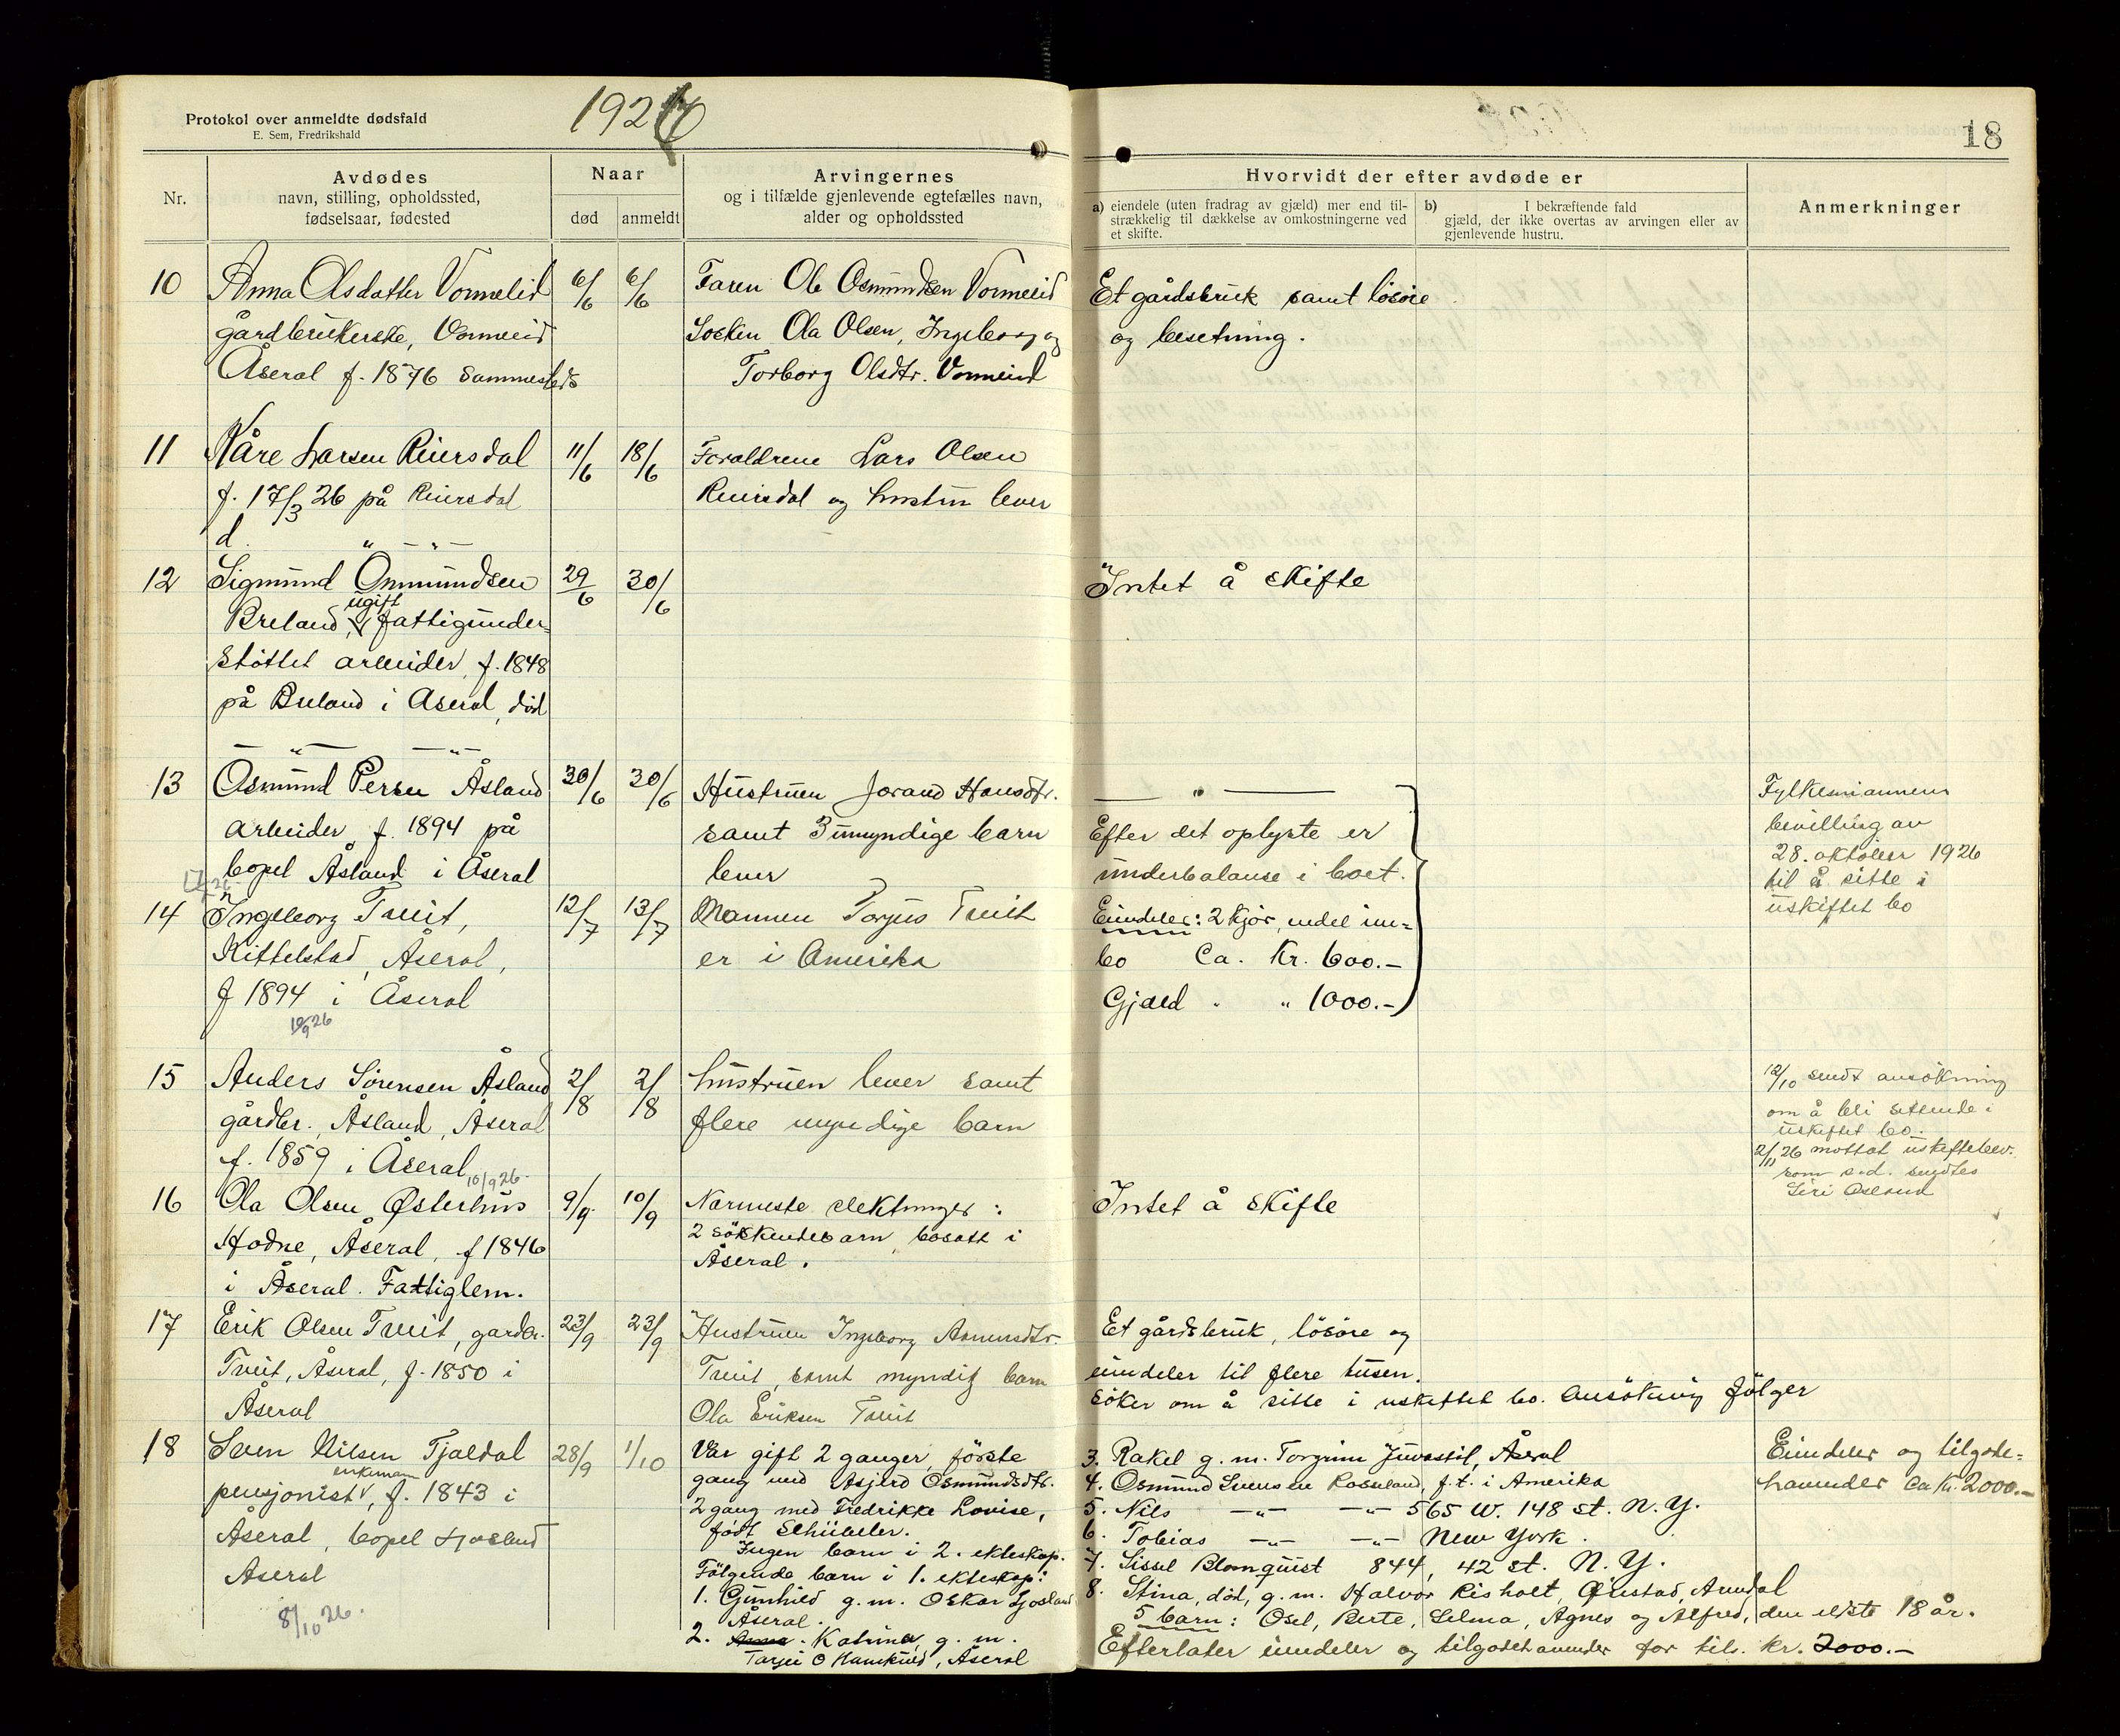 Protokol over anmeldte dødsfald
E. Sem, Fredrikshald
1926
18
Nr.
Avdødes
navn, stilling, opholdssted,
fødselsaar, fødested
Naar
død
anmeldt
Arvingernes
og i tilfælde gjenlevende egtefælles navn,
alder og opholdssted
Hvorvidt der efter avdøde er
a) eiendele (uten fradrag av gjæld) mer end til-
strækkelig til dækkelse av omkostningerne ved
et skifte.
b) I bekræftende fald
gjæld, der ikke overtas av arvingen eller av
gjenlevende hustru.
Anmerkninger
10
Anna Olsdatter Vormelid
gårdbrukerske, Vormelid
Åseral f. 1876 sammesteds
6/6
6/6
Faren Ole Osmundsen Vormelid
Søsken Ola Olsen, Ingeborg og
Torborg Olsdtr. Vormelid
Et gårdsbruk samt lösöre
og besetning.
11
Kåre Larsen Reiersdal
f. 17/3 26 på Reiersdal
d. " — " —
11/6
18/6
Foreldrene Lars Olsen
Reiersdal og hustru lever
12
Sigmund Onmundsen
Breland, ugift fattigunder-
støttet arbeider, f. 1848
på Breland i Åseral, död
— " — — " —
29/6
30/6
Intet å skifte
13
Osmund Persen Åsland
arbeider f. 1894 på
bopel Åsland i Åseral
30/6
30/6
Hustruen Jorand Hansdtr.
samt 3 umyndige barn
lever
— " —
Efter det oplyste er
underbalanse i boet.
Eiendeler: 2 kjör, endel inn-
bo Ca. Kr. 600.-
Gjæld " " 1000.-
Fylkesmannens
bevilling av
28. oktober 1926
til å sitte i
uskiftet bo
14
Ingeborg Tveit,
Kittelstad, Åseral,
f 1894 i Åseral
10/9 26
12/7
13/7
Mannen Torjus Tveit
er i Amerika
15
Anders Sörensen Åsland
gårdbr. Åsland, Åseral
f. 1859 i Åseral
10/9 26.
2/8
2/8
hustruen lever samt
flere myndige barn
12/10 sendt ansökning
om å bli sittende i
uskiftet bo.
2/11 26 mottat uskiftebev.
som s.d. sendtes
Siri Åsland
16
Ola Olsen Østerhus
Hodne, Åseral, f 1846
i Åseral. Fattiglem.
9/9.
10/9
Nærmeste slektninger:
2 sökkendebarn bosatt i
Åseral.
Intet å skifte
17
Erik Olsen Tveit, gardbr.
Tveit, Åseral, f. 1850 i
Åseral
23/9
23/9
Hustruen Ingeborg Asmundsdtr.
Tveit, samt myndig barn
Ola Eriksen Tveit
Et gårdsbruk, lösöre og
eiendeler til flere tusen.
söker om å sitte i uskiftet bo. Ansökning fölger
18
Sven Nilsen Tjaldal
enkemann
pensjonist, f. 1843 i
Åseral, bopel Ljosland
Åseral
8/10 26.
28/9
1/10
Var gift 2 ganger, förste
gang med Asjerd Osmundsdtr.
2 gang med Fredrikke Lovise,
födt Schübeler.
Ingen barn i 2. ekteskap.
Fölgende barn i 1. ekteskap:
1. Gunhild g. m. Oskar Ljosland
Åseral.
2. Anna. Katrina, g. m.
Tarjei O Kamkvid, Åseral
3. Rakel g. m. Torgrim Juvastöl, Åseral
4. Osmund Svensen Rosseland, f. t. i Amerika
5. Nils — " — — " — 565 W. 148 St. N. Y.
6. Tobias — " — — " — New York.
7. Sissel Blomquist 844, 42 St. N. Y.
8. Stina, död, g. m. Halvor Risholt, Øiestad, Arendal
5 barn: Osel, Berte, Selma, Agnes og Alfred, den eldste 18 år.
Efterlater eiendeler og tilgodehavender for tils. kr. 2000.-
Eiendeler og tilgode-
havender ca kr. 2000.-